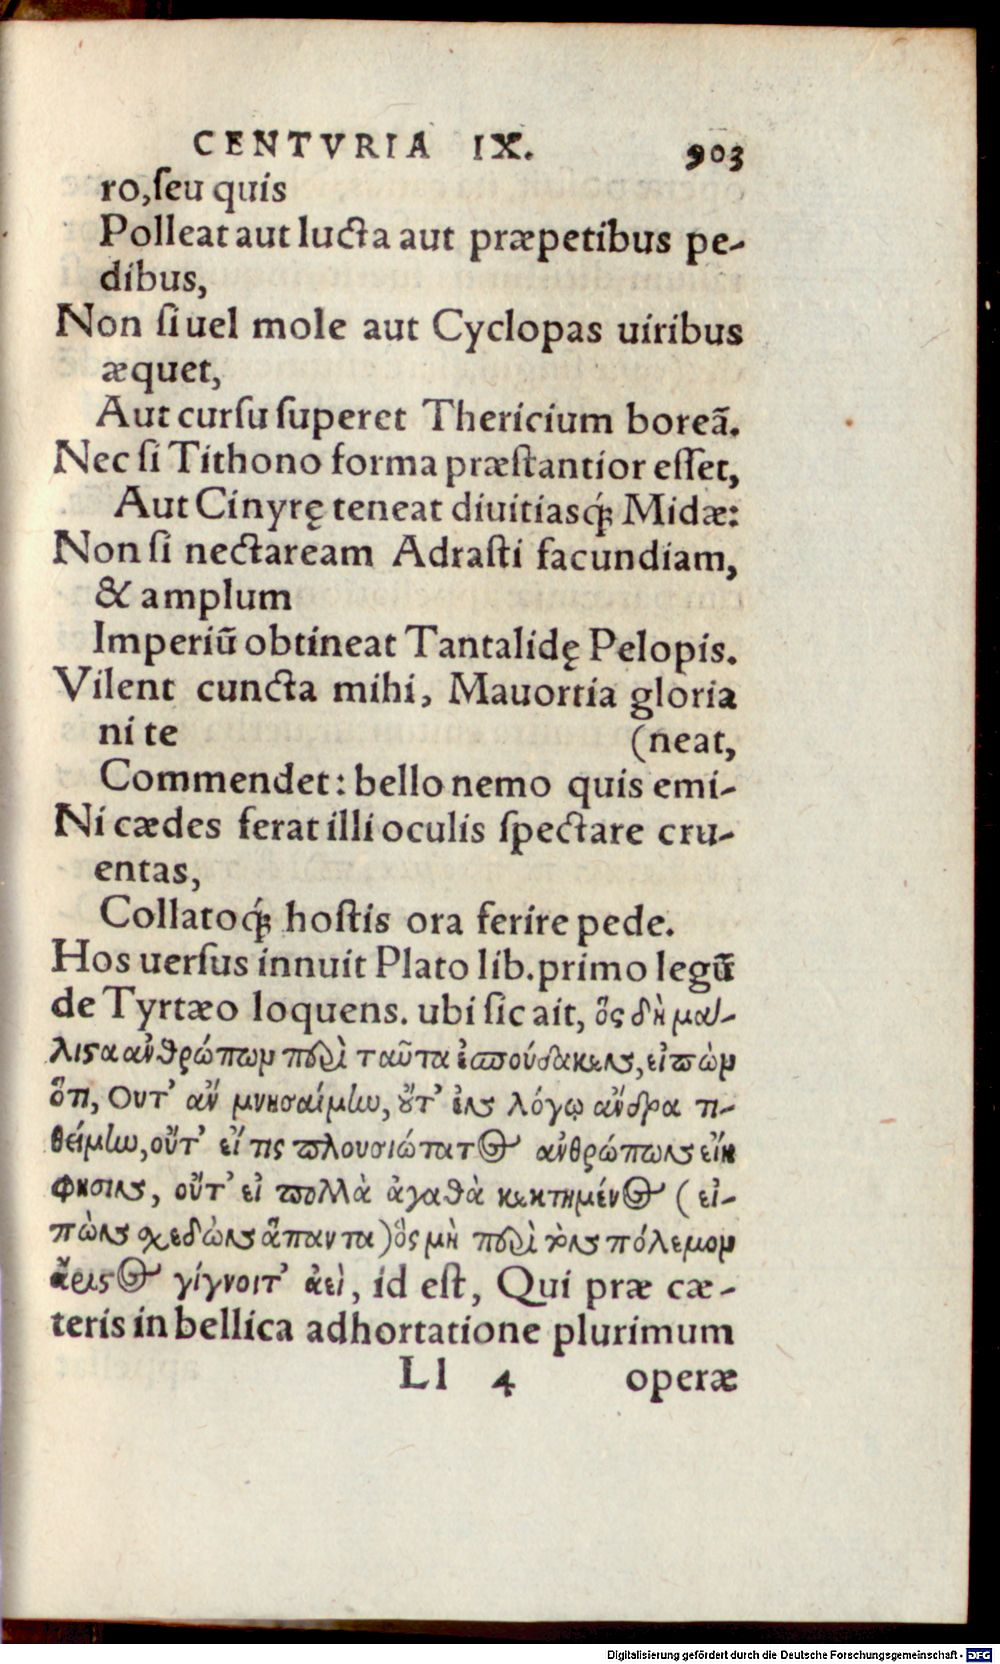 CENTVRIA IX. 903
ro, seu quis
Polleat aut lucta aut præpetibus pe-
dibus,
Non si uel mole aut Cyclopas uiribus
æquet,
Aut cursu superet Thericium boreã.
Nec si Tithono forma præstantior esset,
Aut Cinyrę teneat diuitiasq́; Midæ:
Non si nectaream Adrasti facundiam,
& amplum
Imperiũ obtineat Tantalidę Pelopis.
Vilent cuncta mihi, Mauortia gloria
ni te (neat,
Commendet: bello nemo quis emi-
Ni cædes ferat illi oculis spectare cru-
entas,
Collatoq́; hostis ora ferire pede.
Hos uersus innuit Plato lib. primo legũ
de Tyrtæo loquens. ubi sic ait, ὃς δὴ μά-
λιϛα ἀνθρώπωμ περὶ ταῦτα ἐσπούδακεν, εἰπὼμ
ὅτι, Ουτ’ ἂν μνησαίμην, οὔτ’ ἐν λόγῳ ἄνδρα τι-
θείμην, οὔτ’ εἴ τις πλουσιώτατος ἀνθρώπων εἴη
φησιν, οὔτ’ εἰ πολλὰ ἀγαθὰ κεκτημένος (εἰ-
πὼν σχεδὼν ἅπαντα) ὃς μὴ περὶ τὸν πόλεμομ
ἄριϛος γίγνοιτ’ ἀεὶ, id est, Qui præ cæ-
teris in bellica adhortatione plurimum
Ll 4 operæ
Digitalisierung gefördert durch die Deutsche Forschungsgemeinschaft - DFG